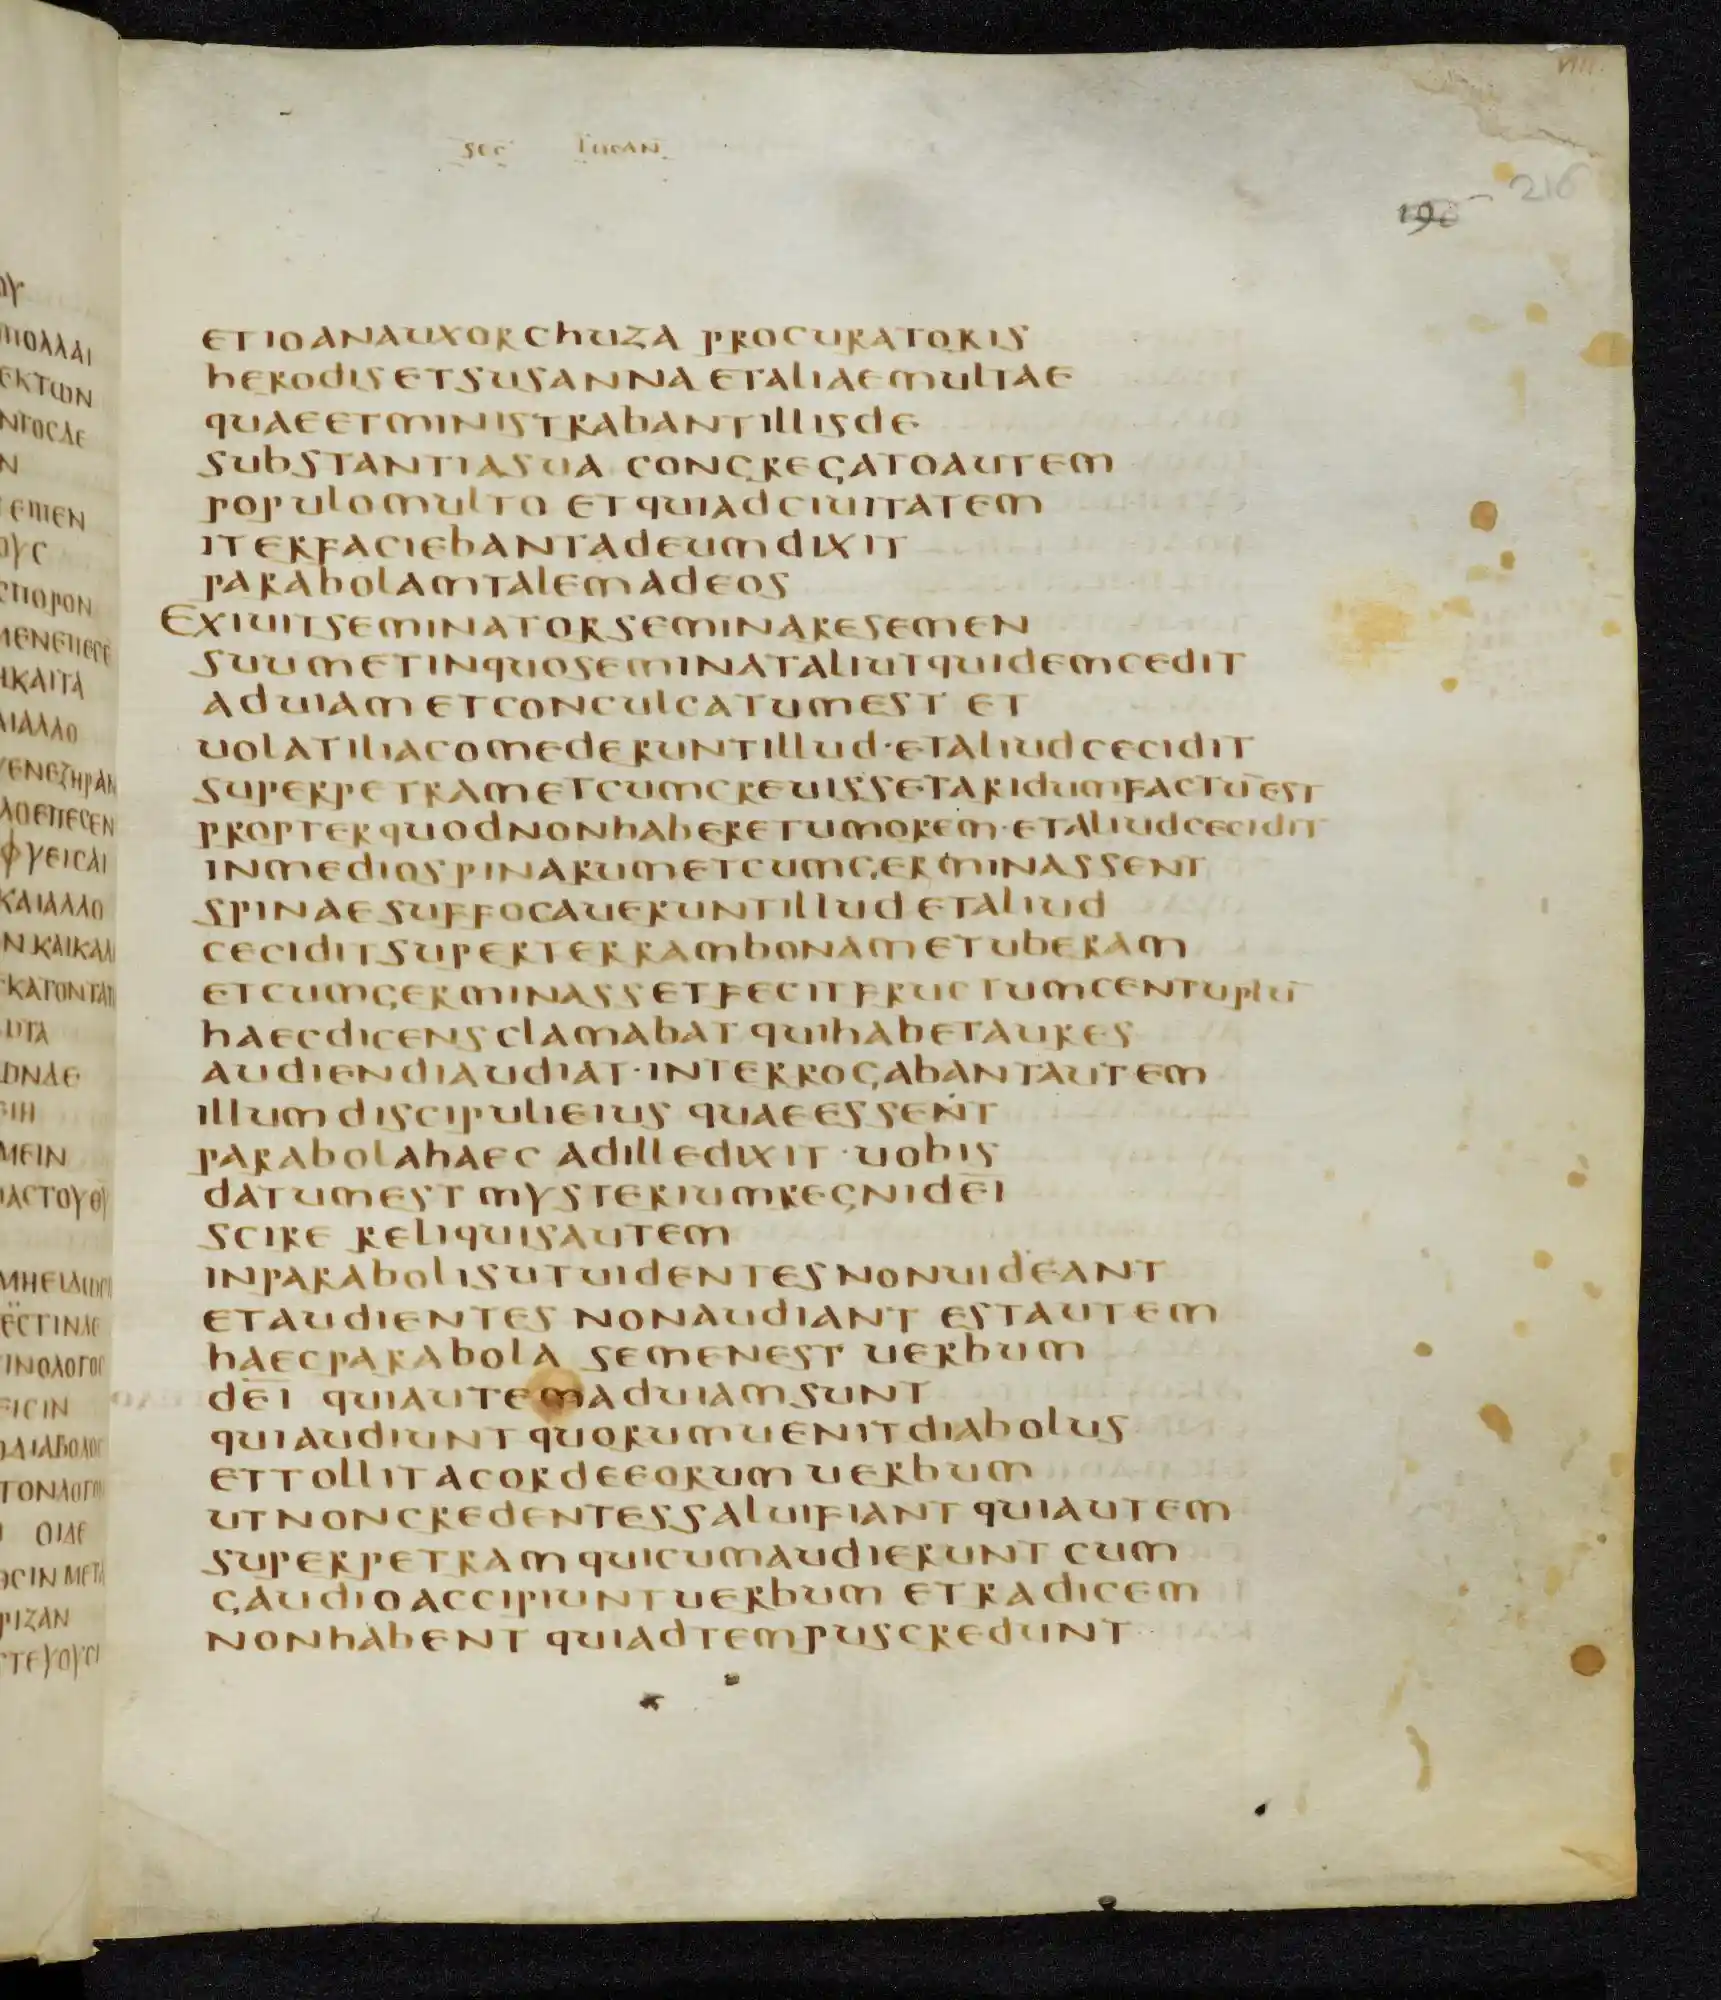 VIIII
SEC LUCAN
190 - 216
ETIOANAUXORCHUZA PROCURATORIS
HERODISETSUSANNA ETALIAEMULTAE
QUAEETMINISTRABANTILLISDE
SUBSTANTIASUA CONGREGATOAUTEM
POPULOMULTO ETQUIADCIUITATEM
ITERFACIEBANTADEUMDIXIT
PARABOLAMTALEMADEOS
EXIUITSEMINATORSEMINARESEMEN
SUUMETINQUOSEMINATALIUTQUIDEMCEDIT
ADUIAMETCONCULCATUMEST ET
UOLATILIACOMEDERUNTILLUD·ETALIUDCECIDIT
SUPERPETRAMETCUMCREUISSETARIDUMFACTŪEST
PROPTERQUODNONHABERETUMOREM·ETALIUDCECIDIT
INMEDIOSPINARUMETCUMGERMINASSENT
SPINAESUFFOCAUERUNTILLUDETALIUD
CECIDITSUPERTERRAMBONAMETUBERAM
ETCUMGERMINASSETFECITFRUCTUMCENTUPLŪ
HAECDICENSCLAMABAT QUIHABETAURES
AUDIENDIAUDIAT·INTERROGABANTAUTEM
ILLUMDISCIPULIEIUS QUAEESSENT
PARABOLAHAEC ADILLEDIXIT·UOBIS
DATUMEST MYSTERIUMREGNIDEĪ
SCIRE RELIQUISAUTEM
INPARABOLISUTUIDENTESNONUIDEANT
ETAUDIENTES NONAUDIANT ESTAUTEM
HAECPARABOLA SEMENEST UERBUM
DEĪ QUIAUTEMADUIAMSUNT
QUIAUDIUNT QUORUMUENITDIABOLUS
ETTOLLITACORDEEORUM UERBUM
UTNONCREDENTESSALUIFIANT QUIAUTEM
SUPERPETRAMQUICUMAUDIERUNT CUM
GAUDIOACCIPIUNTUERBUM ETRADICEM
NONHABENT QUIADTEMPUSCREDUNT